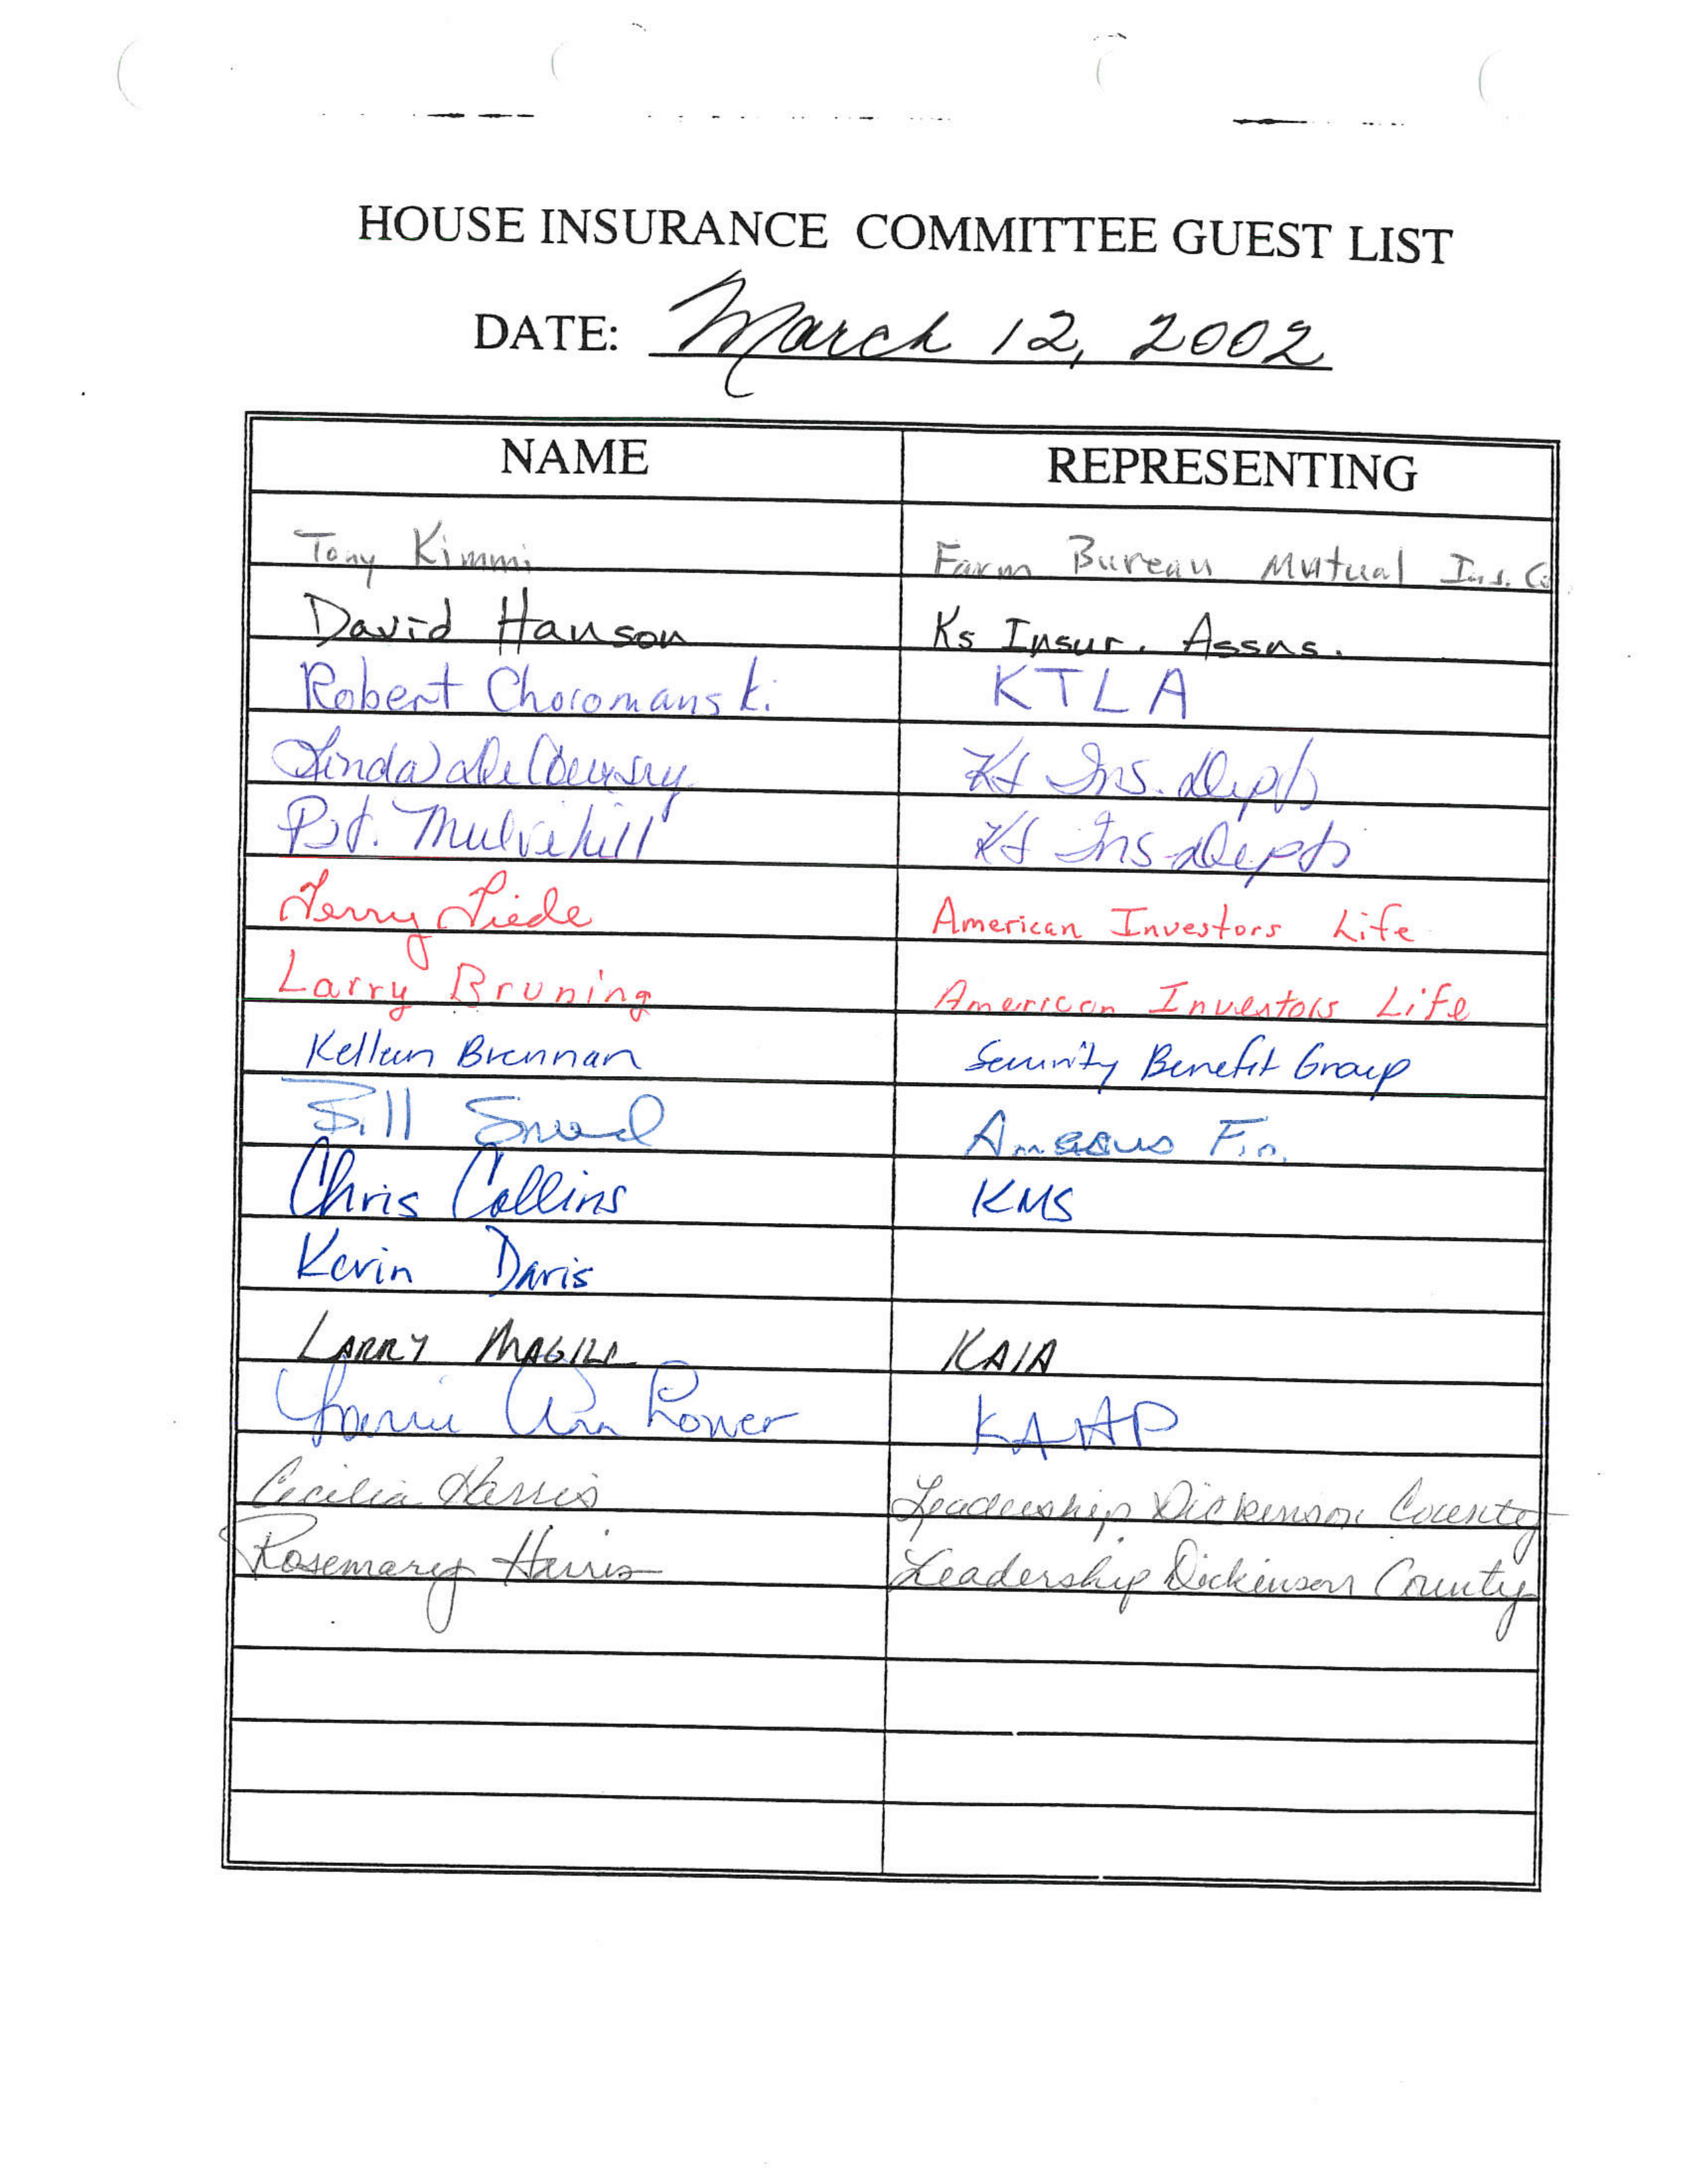 HOUSE INSURANCE COMMITTEE GUEST LIST
DATE: March 12, 2002
NAME REPRESENTING
Tony Kimmi Farm Bureau Mutual Ins. Co
David Hanson Ks Insur. Assns.
Robert Choromanski KTLA
Linda De Coursey Ks Ins. Dept
Pat. Mulvihill Ks Ins Dept
Terry Liede American Investors Life
Larry Bruning American Investors Life
Kelleen Brennan Security Benefit Group
Bill Sneed Amerus Fin.
Chris Collins KMS
Kevin Davis
LARRY MAGILL KAIA
Ann Power KAHP
Cecilia Harris Leadership Dickinson County
Rosemary Harris Leadership Dickinson County